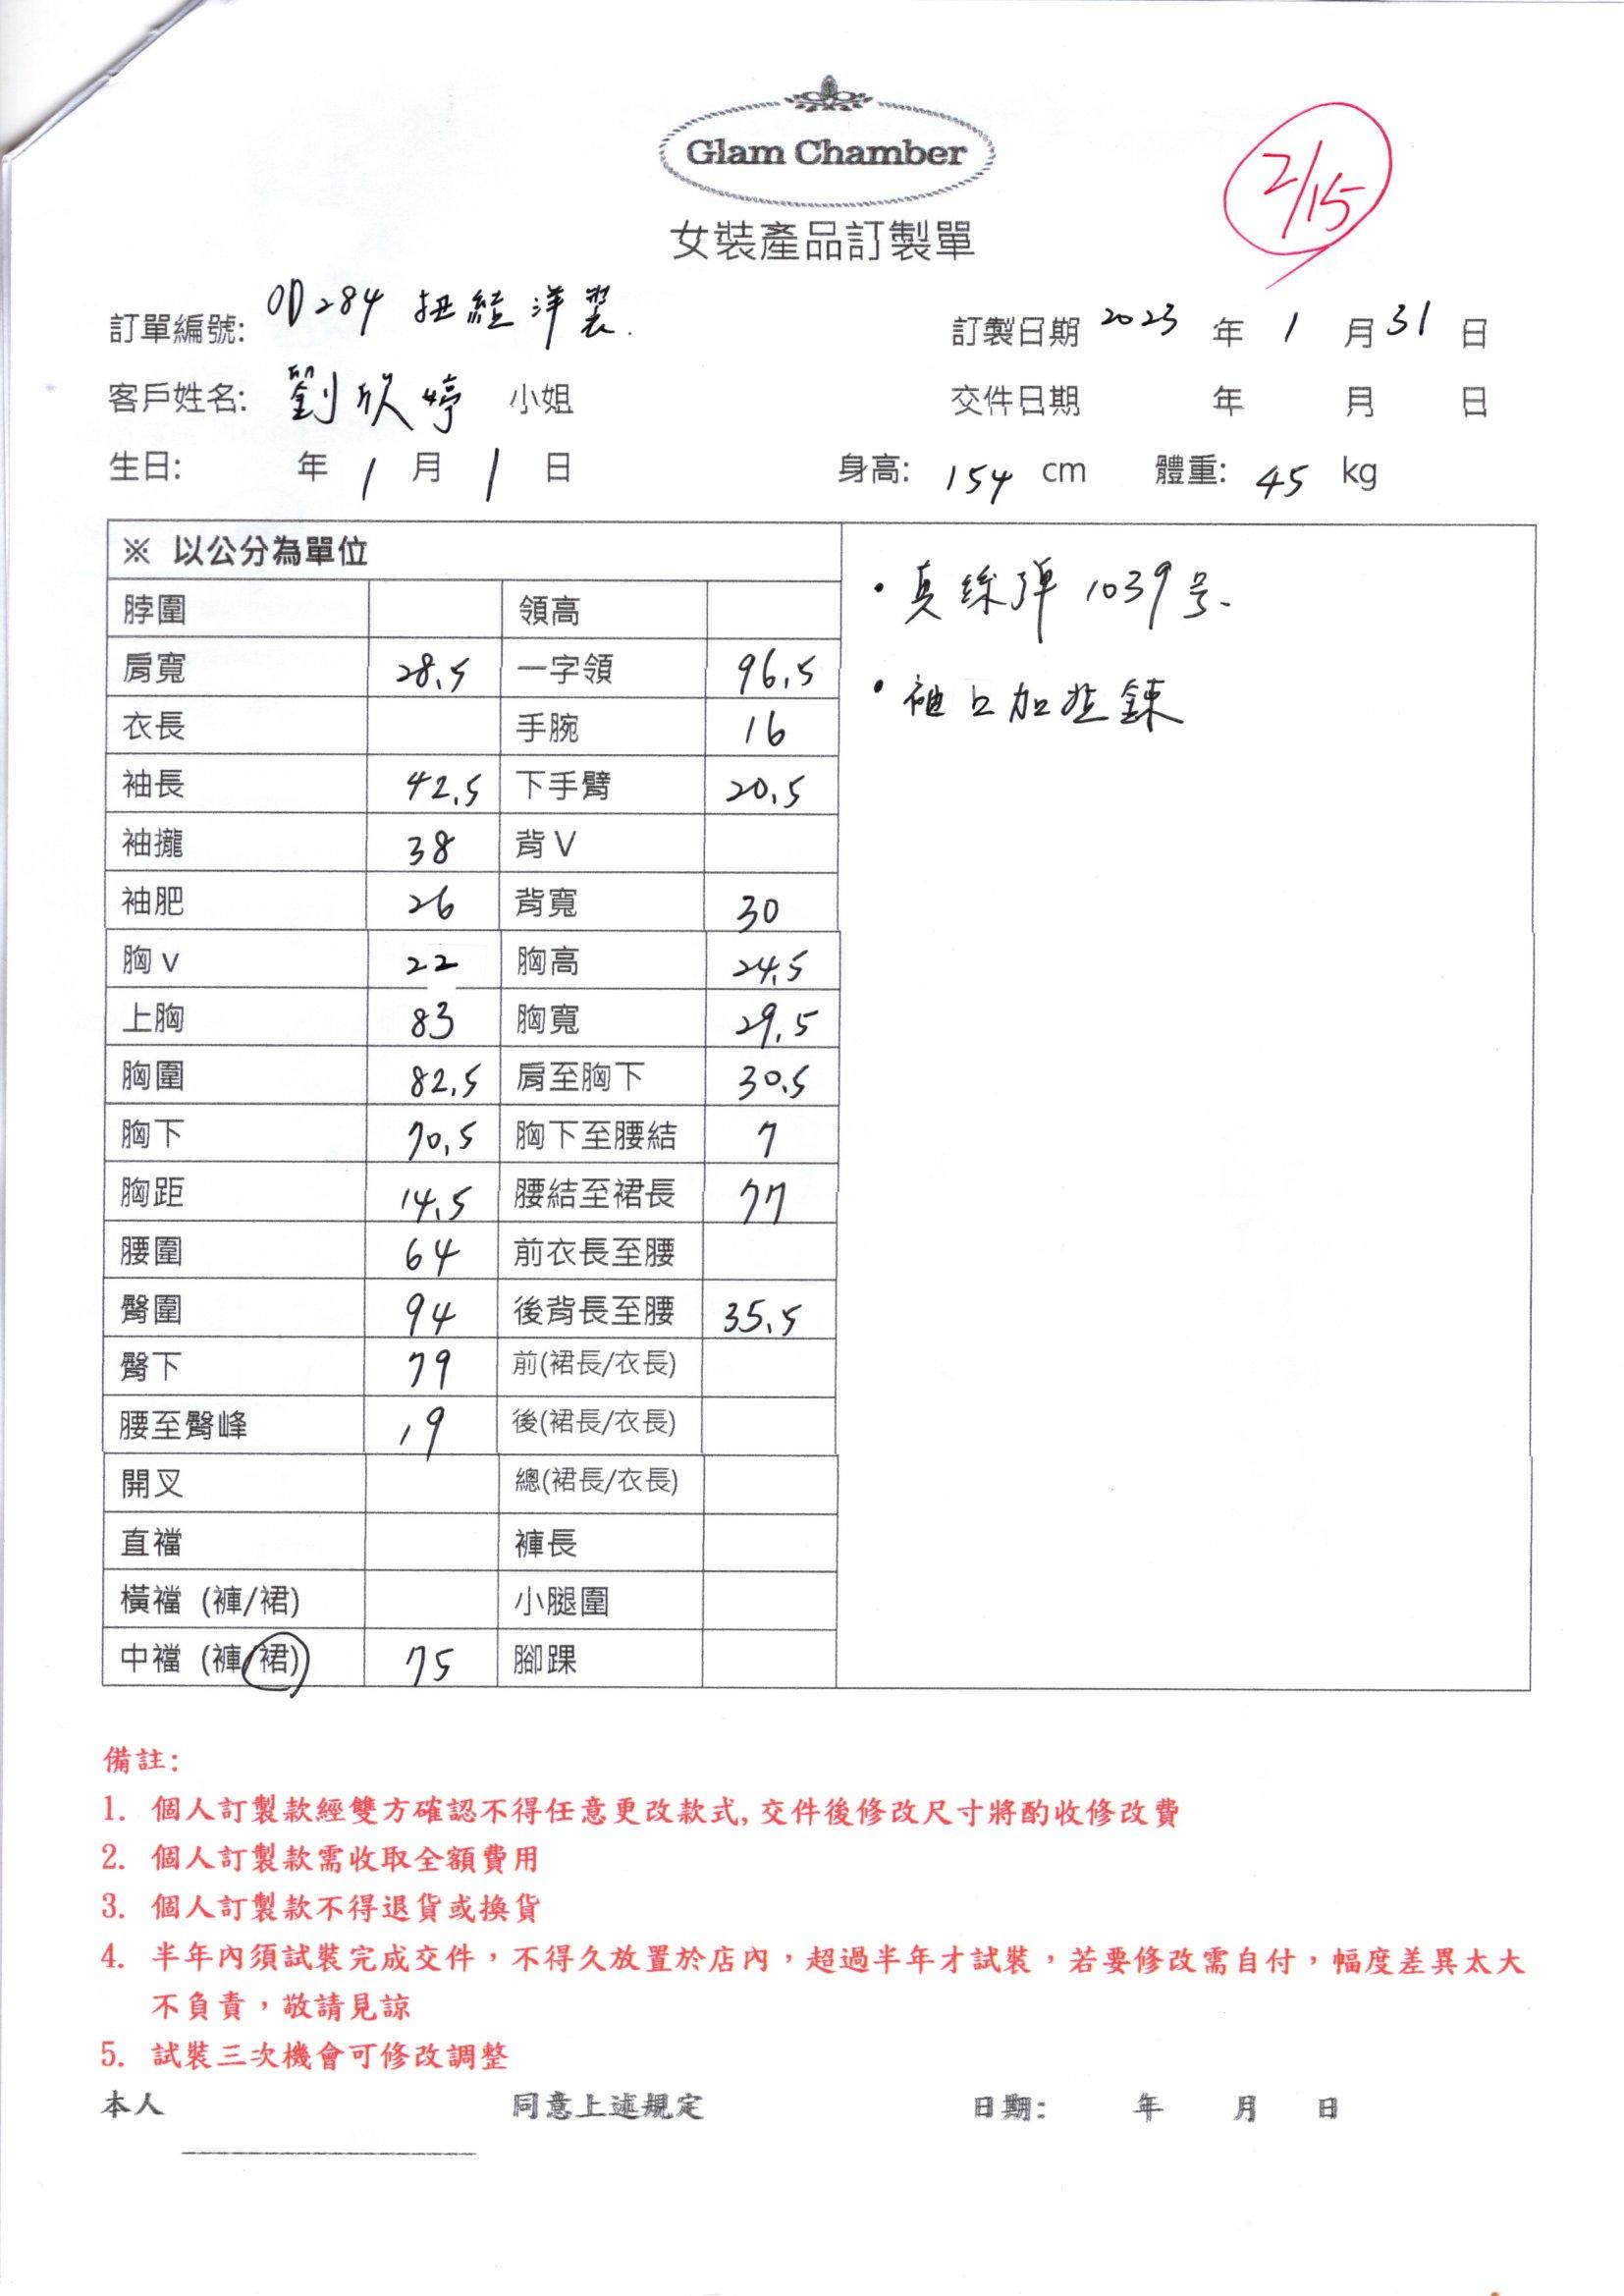 Glam Chamber
2/15
女裝產品訂製單
訂單編號: OD284 扭結洋裝.
訂製日期 2023 年 1 月 31 日
客戶姓名: 劉欣婷 小姐
交件日期 年 月 日
生日: 年 1 月 1 日 身高: 154 cm 體重: 45 kg
※ 以公分為單位
脖圍 領高
肩寬 28.5 一字領 96.5
衣長 手腕 16
袖長 42.5 下手臂 20.5
袖攏 38 背V
袖肥 26 背寬 30
胸v 22 胸高 24.5
上胸 83 胸寬 29.5
胸圍 82.5 肩至胸下 30.5
胸下 70.5 胸下至腰結 7
胸距 14.5 腰結至裙長 77
腰圍 64 前衣長至腰
臀圍 94 後背長至腰 35.5
臀下 79 前(裙長/衣長)
腰至臀峰 19 後(裙長/衣長)
開叉 總(裙長/衣長)
直襠 褲長
橫襠 (褲/裙) 小腿圍
中襠 (褲/裙) 75 腳踝
• 真絲彈 1039号.
• 袖口加拉鍊
備註:
1. 個人訂製款經雙方確認不得任意更改款式,交件後修改尺寸將酌收修改費
2. 個人訂製款需收取全額費用
3. 個人訂製款不得退貨或換貨
4. 半年內須試裝完成交件，不得久放置於店內，超過半年才試裝，若要修改需自付，幅度差異太大
不負責，敬請見諒
5. 試裝三次機會可修改調整
本人 同意上述規定 日期: 年 月 日